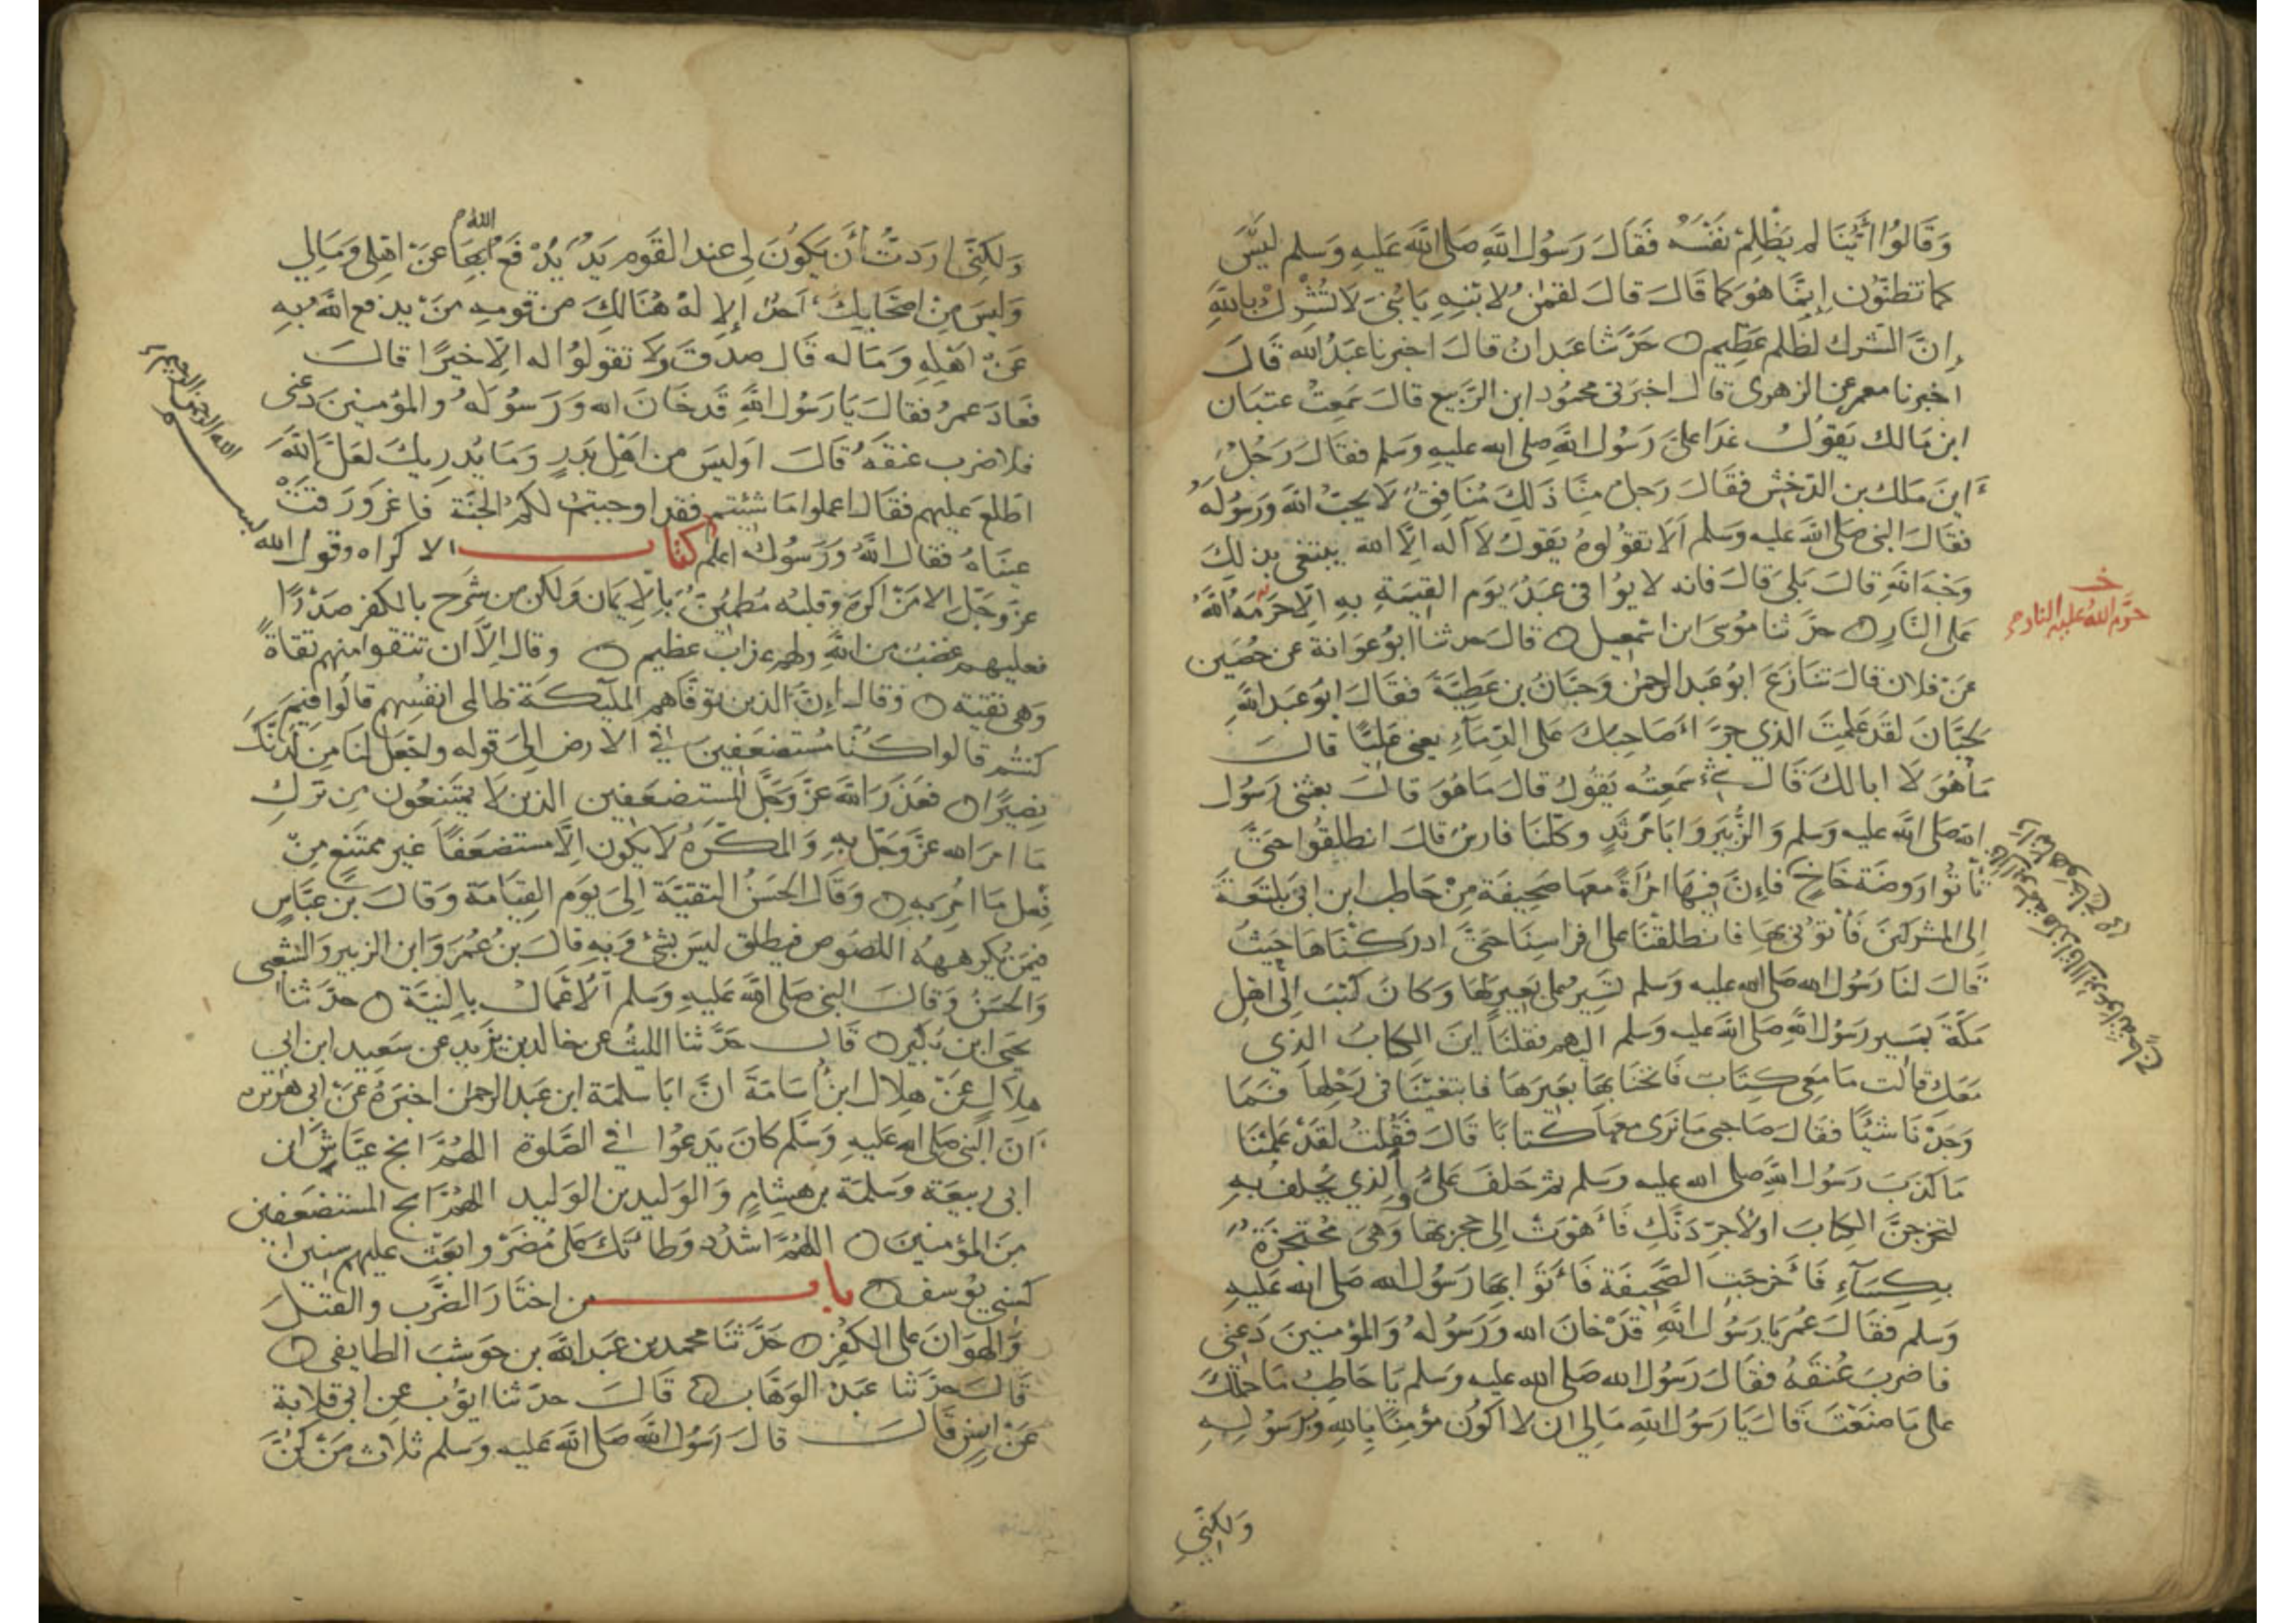 وَقَالُوا أَيُّنَا لم يَظْلِمْ نَفْسَهُ فَقَالَ رَسُولُ اللَّهِ صَلى اللَّه عَلَيهِ وَسَلم لَيْسَ
كما تظنّون إنّما هُوَ كما قَالَ قالَ لقمٰنُ لابنِهِ يَا بُنَيَّ لَا تُشْرِكْ بِاللَّهِ
إنَّ الشرك لظلم عظِيم حَدَّثنا عَبدان قالَ اخبرنا عَبْدُ الله قَالَ
اخبرنا معمر عن الزهرى قال اخبرَنى محمُود ابن الرّبيع قالَ سَمِعتُ عتبَان
ابن مَالك يَقوُلُ غدَا علىَّ رَسُول اللَّهِ صلى الله عليهِ وَسَلم فقَالَ رَجُلٌ
اينَ مَلك بن الدّخشن فقَالَ رَجلٌ مِنَّا ذَلكَ مُنَافِقٌ لَا يحبّ اللَّهَ وَرَسُولَهُ
فقَالَ النبى صَلى اللَّه عليه وَسَلم أَلا تقوُلوهُ يَقولُ لا اله إلّا الله يبتغى بذلِكَ
وَجْهَ اللَّهِ قالَ بَلى قالَ فانه لا يوُافى عَبدٌ يَوم القيٰمَةِ بِهِ إلّا حَرَّمَهُ اللَّهُ
على النَّارِ حدَّثنا مُوسَى ابن اسمٰعيل قالَ حدثنا ابوُ عَوَانة عن حُصَين
عَنْ فلان قالَ تنَازَعَ ابوُ عَبد الرحمٰن وَحبَّانُ بن عَطِيَّةَ فقَالَ ابوُ عَبد اللَّهِ
لحبَّانَ لقَد عَلِمتَ الذي جرَّأ صَاحِبكَ عَلى الدِّمَآءِ يعني عَليًّا قالَ
مَا هُوَ لَا ابا لكَ قَالَ شئ سَمِعتُه يَقوُلُ قالَ مَا هُوَ قالَ بعثنى رَسُول
اللَّه صَلى اللَّه عليه وَسَلم وَالزُّبَيرَ وَابَا مَرثَدٍ وكلّنَا فارسٌ قالَ انطلقُوا حَتَّى
تأتُوا رَوضَة خَاخٍ فإنَّ فيهَا امْرَأةً معهَا صَحِيفَة مِنْ حَاطب ابن ابى بلتعَةَ
إلى المشركينَ فَأتوُنى بهَا فانطلقنَا على افراسِنَا حَتَّى ادركنَاهَا حَيثُ
قَالَ لنَا رَسُول الله صَلى الله عليه وَسَلم تَسِيرُ على بَعِيرٍ لهَا وَكانَ كتبَ إلى اهْل
مَكّةَ بمَسِير رَسُول اللَّه صَلى اللَّه عليه وَسَلم اليهم فقلنَا اينَ الكِتابُ الذي
مَعَكِ قالت مَا مَعِى كِتَابٌ فَانخنَا بهَا بَعِيرَهَا فابتغَيْنَا فى رَحْلِهَا فمَا
وَجَدْنَا شيْئًا فقَالَ صَاحِبى مَا نرَى معهَا كتابًا قَالَ فقُلتُ لقدْ عَلِمْنَا
مَا كذَبَ رَسُول اللَّهِ صلى الله عليه وَسَلم ثمّ حَلفَ عَلىٌّ والذي يُحلفُ بِهِ
لتخرجنَّ الكِتابَ اولأجرّدَنَّكِ فَأهْوَتْ إلى حجزتها وَهى مُحْتَجِزَةٌ
بكِسَآءٍ فَأخرَجَتِ الصَّحِيفَة فَأتوَا بهَا رَسُول الله صَلى الله عَليهِ
وَسَلم فقَالَ عُمرُ يَا رَسُول اللَّهِ قَدْ خانَ الله وَرَسُولهُ وَالمؤمنينَ دَعْنى
فاضرِبَ عُنقَهُ فقَالَ رَسُول الله صَلى الله عليه وَسَلم يَا حَاطِبُ مَا حَملكَ
على مَا صَنَعْتَ قَالَ يَا رَسُول اللَّهِ مَالى ان لا اكوُن مؤمِنًا بِاللهِ وَبرَسُولِهِ
وَلكِنِّي
خـ
حَرَّمَ اللهُ عَليه النار
وَلكِنِّى اردَتُ أنْ يَكوُنَ لى عند القَوم يَدٌ يَدْفَع اللهُ بهَا عَنْ اهْلى وَمَالِي
وَليسَ مِنْ اصحَابكَ أحَدٌ إلا لهُ هُنَالِكَ من قومِهِ مَنْ يدفع اللَّهُ بهِ
عَنْ اهْلِهِ وَمَاله قَالَ صدَقَ وَلا تقولوُا له إلَّا خيرًا قالَ
فعَادَ عمرُ فقالَ يَا رَسُول اللَّهِ قَد خَانَ الله وَرَسُولهُ والمؤمنينَ دَعنى
فلاضرب عنقَهُ قَالَ اوَليسَ من اهْل بَدرٍ وَمَا يُدريكَ لعَلَّ اللَّهَ
اطّلعَ عليهم فقَالَ اعملوا مَا شئتم فقد اوجبتُ لكمُ الجنَّة فاغرَورَقتْ
عينَاهُ فقالَ اللَّهُ وَرَسُولهُ اعلم كتاب الاكراه وقول الله
عزَّ وَجَلّ الا مَنْ اكرهَ وقلبُه مُطمَئِنٌّ بالإيمَان وَلكن من شَرَح بالكفر صَدْرًا
فعليهم غضبٌ مِنَ اللَّهِ ولهم عذابٌ عظيم وقالَ إلَّا ان تتقوا منهم تقاةً
وَهى تقيّة وقالَ إنَّ الذين توَفّاهم الملٓئكةُ ظالمى انفُسِهم قالُوا فيمَ
كنتُم قالوا كنَّا مُستضعَفينَ في الارض إلى قوله وَاجْعَل لنَا مِن لدنْكَ
نصِيرًا فعَذرَ اللَّه عزَّ وَجَلَّ المستضعَفين الذينَ لا يمتَنعُون من ترْكِ
مَا امرَ الله عزَّ وَجَلّ بهِ وَالمكرَهُ لا يكون إلَّا مستضعَفًا غير ممتَنع مِنْ
فِعل مَا اُمِرَ بهِ وَقَالَ الحسَنُ التقيّة إلى يَوم القِيَامَة وَقالَ بن عبَّاسٍ
فيمَن يُكرههُ اللصُوص فيطلق ليسَ بشئ وَبهِ قالَ بن عُمَرَ وَابن الزبير والشعبى
وَالحسَنُ وَقالَ النبى صَلى اللَّه عَليهِ وَسَلم الأعْمَالُ بالنيَّة حدّثنا
يَحيَى ابن بُكَير قَالَ حَدّثنا الليثُ عن خالد بن يزيد عن سَعِيد ابن ابى
هِلالٍ عَنْ هِلال ابن أسَامَة انَّ ابَا سلمَة ابن عَبد الرحمٰن اخبَرَهُ عَنْ ابى هرَيرة
أنَّ النَّبى صَلى الله عَليهِ وَسَلم كانَ يَدعوُا في الصَّلوة اللهُمَّ انج عيَّاشَ ابن
ابى رَبيعَة وَسَلمَة بن هِشامٍ وَالوَليد بن الوَليد اللهُمَّ انج المستضعَفين
مِنَ المؤمنينَ اللهُمَّ اشدُد وَطأتكَ عَلى مُضَرَ وابعَث عليهم سنين
كسنى يوُسف باب من اختارَ الضَّرب والقتلَ
وَالهوَانَ على الكُفْر حَدَّثنَا محمد بن عَبد اللَّه بن حَوشَبَ الطايفى
قَالَ حدّثنا عَبدُ الوَهَّاب قَالَ حدَّثنا ايّوُب عن ابى قلابة
عَنْ انسٍ قَالَ قالَ رَسُول اللَّه صَلى اللَّه عَليه وَسَلم ثلاث مَنْ كنَّ
بسم
الله الرحمن الرحيم